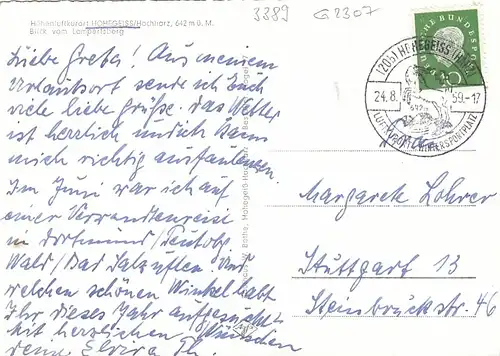 Höhenluftkurort HOHEGEISS/Hochharz, 642 m ü. M.
Blick vom Lampertsberg
3389 G2307
Liebe Grete! Aus meinem
Urlaubsort sende ich Euch
viele liebe Grüße. Das Wetter
ist herrlich und ich kann
mich richtig ausfaulenzen.
Im Juni war ich auf
einer Verwandtenreise
in Dortmund/Teutobg.
Wald/Bad Salzuflen. Und
welchen schönen Winkel habt
Ihr dieses Jahr aufgesucht?
Mit herzlichen Wünschen
deine Elvira Th.
DEUTSCHE BUNDESPOST
10
(20b) HOHEGEISS (HARZ)
24.8. 59.-17
LUFTKURORT WINTERSPORTPLATZ
Frau
Margarete Lohrer
Stuttgart 13
Steinbrückstr. 46